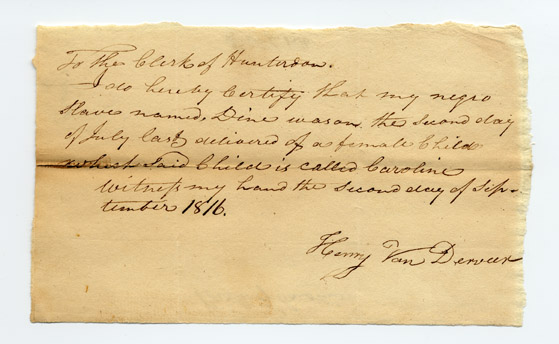 To the Clerk of Hunterdon.
I do hereby Certify that my negro
Slave named, Dine was on the second day
of July last, delivered of a female Child
which said Child is called Caroline
Witness my hand the second day of Sep-
tember 1816.
Henry Van Derveer